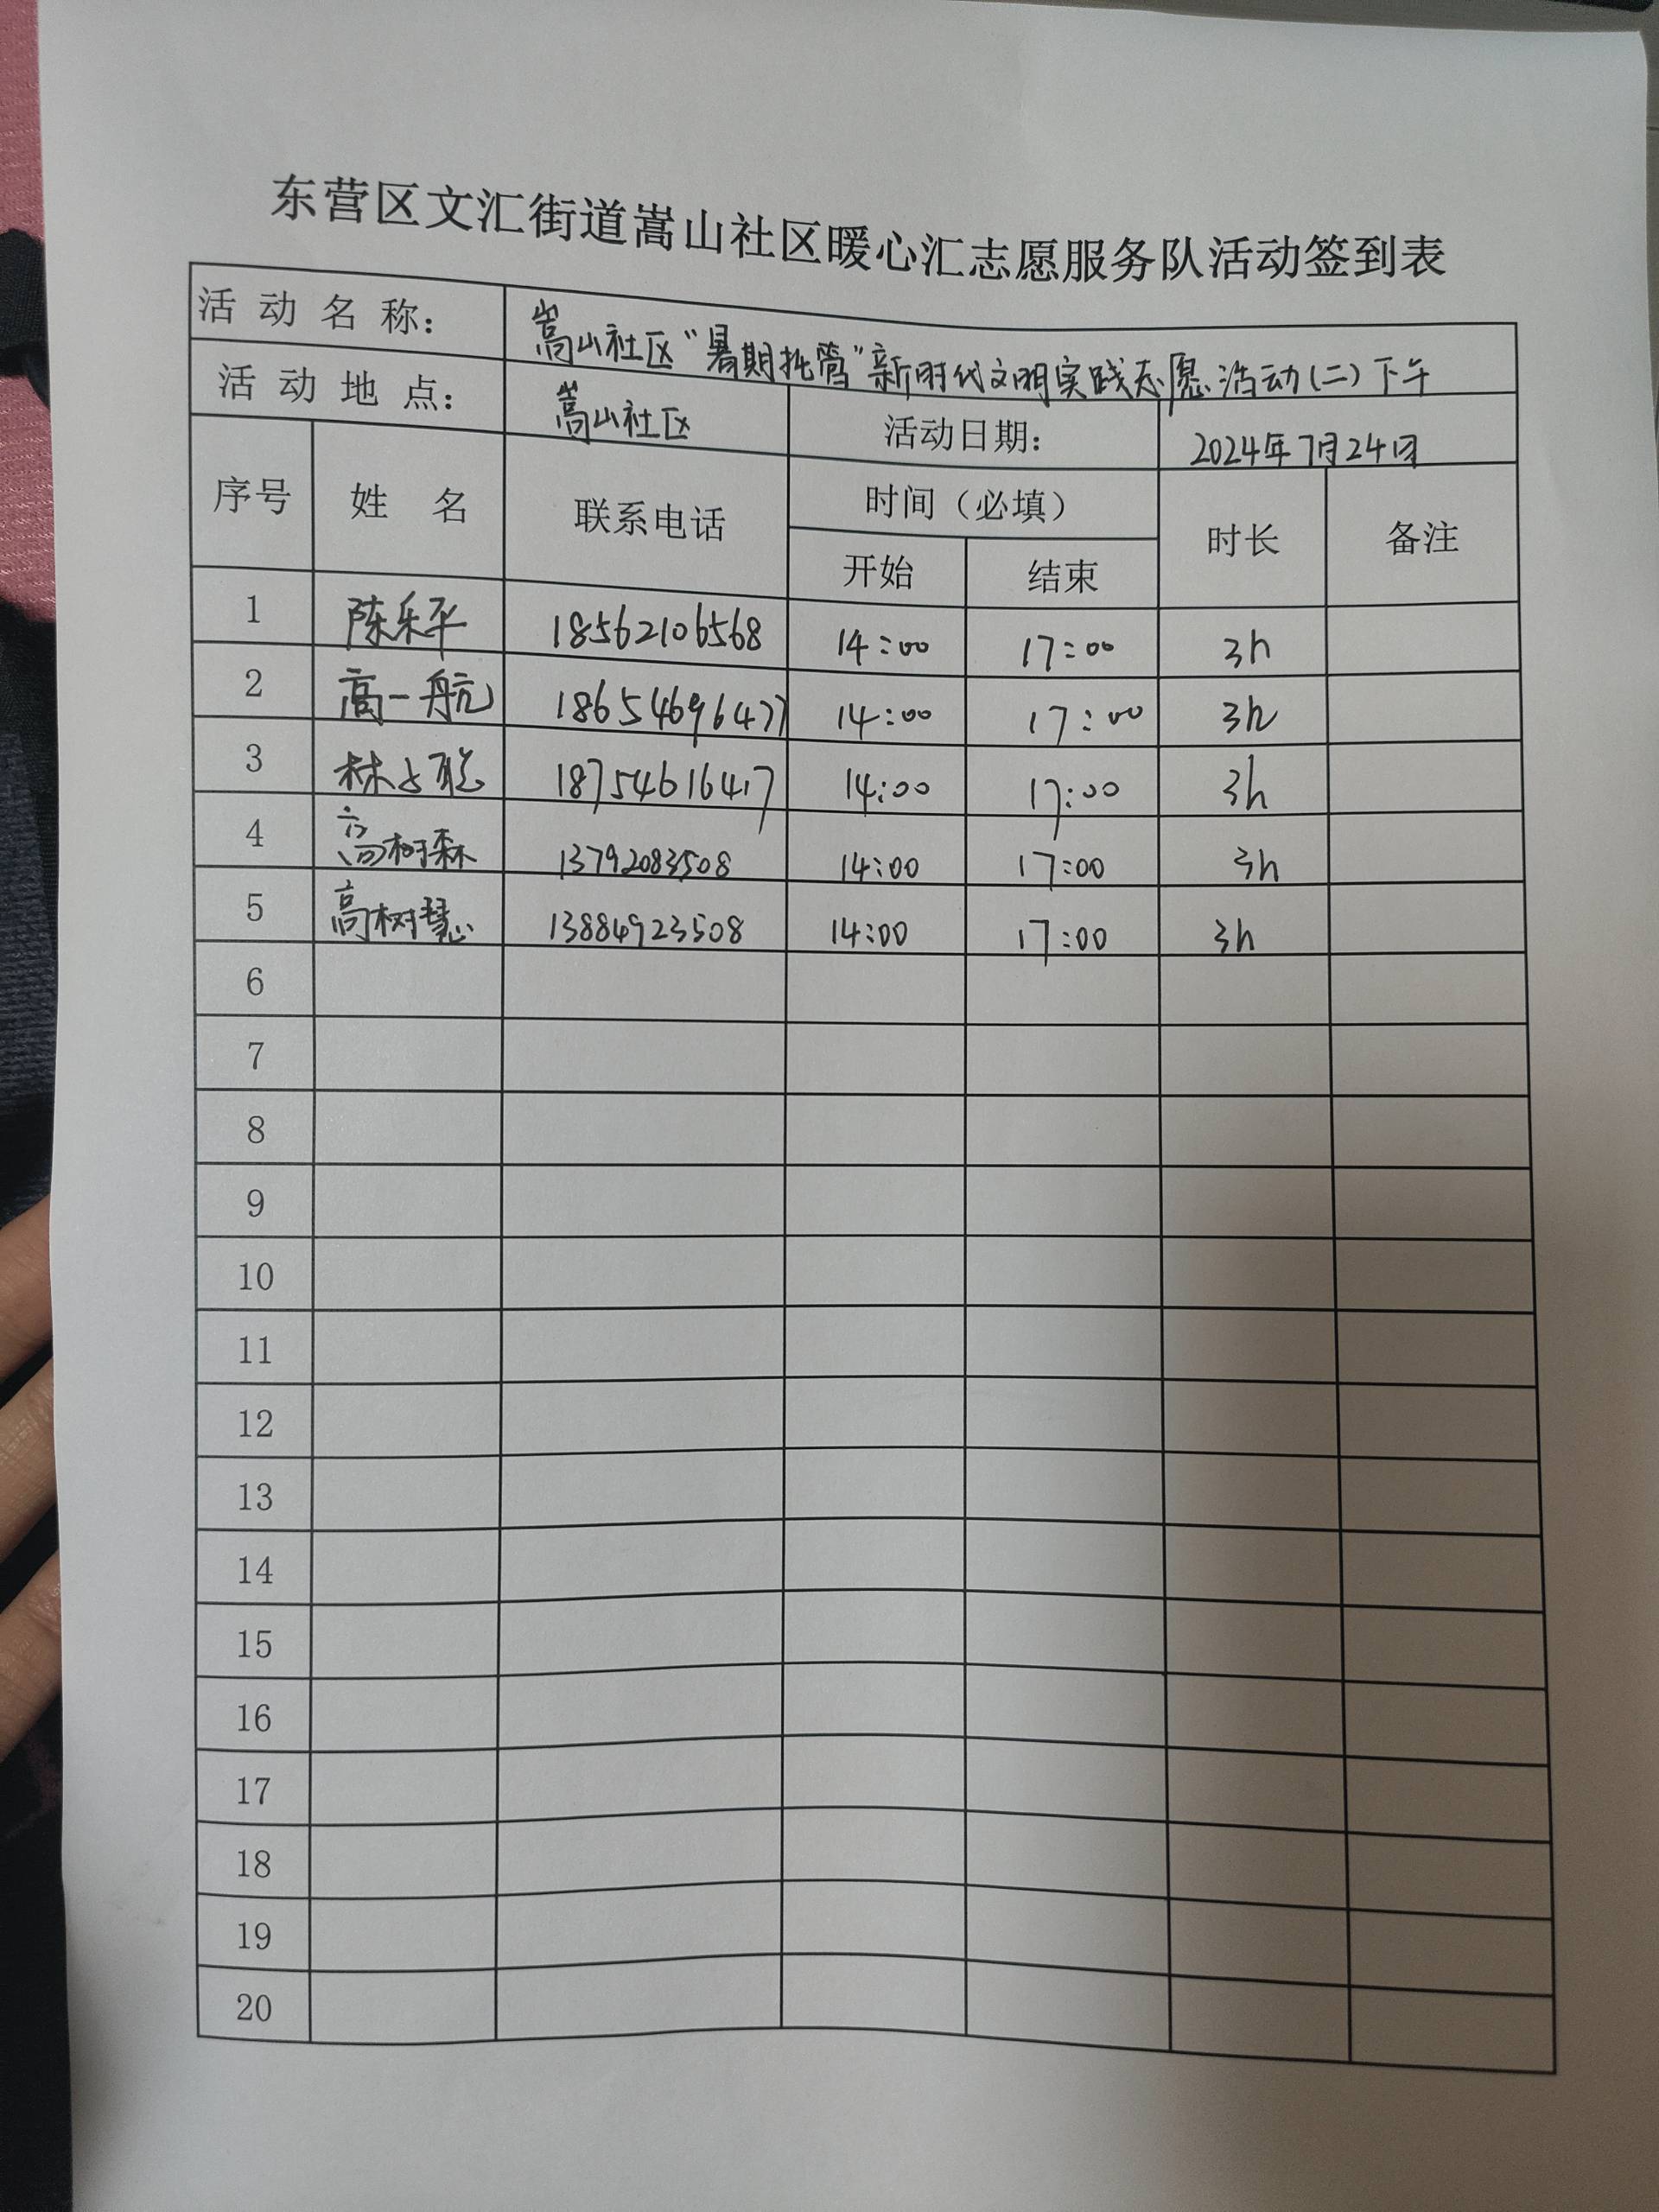 东营区文汇街道嵩山社区暖心汇志愿服务队活动签到表
活动名称： 嵩山社区“暑期托管”新时代文明实践志愿活动(二)下午
活动地点： 嵩山社区 活动日期： 2024年7月24日
序号 姓名 联系电话 时间（必填） 时长 备注
开始 结束
1 陈乐平 18562106568 14:00 17:00 3h
2 高一航 18654696477 14:00 17:00 3h
3 林 聪 18754616417 14:00 17:00 3h
4 高树森 13792083508 14:00 17:00 3h
5 高树慧 13884923508 14:00 17:00 3h
6
7
8
9
10
11
12
13
14
15
16
17
18
19
20